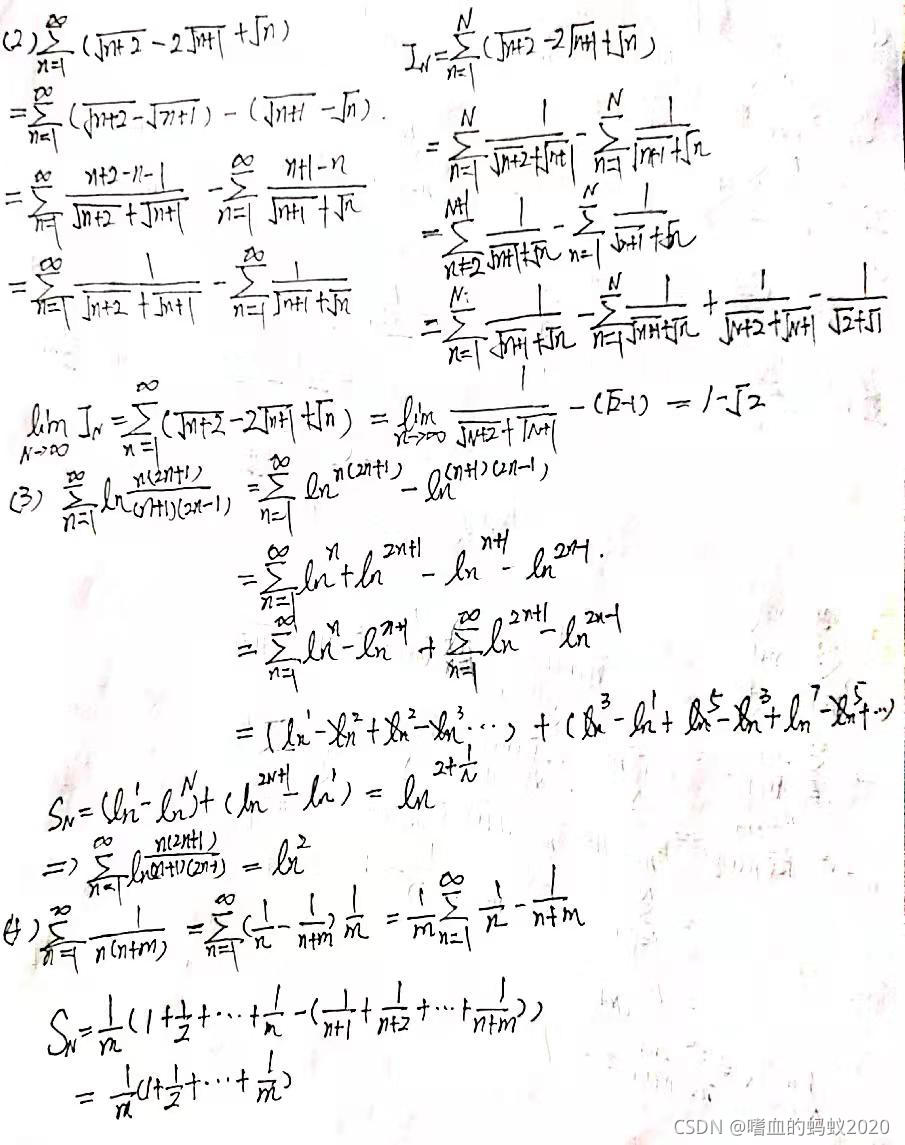 (2) ∑_{n=1}^{∞} (√(n+2) − 2√(n+1) + √n)
= ∑_{n=1}^{∞} (√(n+2) − √(n+1)) − (√(n+1) − √n).
= ∑_{n=1}^{∞} (n+2−n−1)/(√(n+2) + √(n+1)) − ∑_{n=1}^{∞} (n+1−n)/(√(n+1) + √n)
= ∑_{n=1}^{∞} 1/(√(n+2) + √(n+1)) − ∑_{n=1}^{∞} 1/(√(n+1) + √n)
I_N = ∑_{n=1}^{N} (√(n+2) − 2√(n+1) + √n)
= ∑_{n=1}^{N} 1/(√(n+2) + √(n+1)) − ∑_{n=1}^{N} 1/(√(n+1) + √n)
= ∑_{n=2}^{N+1} 1/(√(n+1) + √n) − ∑_{n=1}^{N} 1/(√(n+1) + √n)
= ∑_{n=1}^{N} 1/(√(n+1) + √n) − ∑_{n=1}^{N} 1/(√(n+1) + √n) + 1/(√(N+2) + √(N+1)) − 1/(√2 + √1)
lim_{N→∞} I_N = ∑_{n=1}^{∞} (√(n+2) − 2√(n+1) + √n) = lim_{n→∞} 1/(√(N+2) + √(N+1)) − (√2−1) = 1−√2
(3) ∑_{n=1}^{∞} ln^{n(2n+1)/((n+1)(2n−1))} = ∑_{n=1}^{∞} ln^{n(2n+1)} − ln^{(n+1)(2n−1)}
= ∑_{n=1}^{∞} ln^{n} + ln^{2n+1} − ln^{n+1} − ln^{2n−1}.
= ∑_{n=1}^{∞} ln^{n} − ln^{n+1} + ∑_{n=1}^{∞} ln^{2n+1} − ln^{2n−1}
= (ln^{1} − ln^{2} + ln^{2} − ln^{3} ⋯) + (ln^{3} − ln^{1} + ln^{5} − ln^{3} + ln^{7} − ln^{5} + ⋯)
S_N = (ln^{1} − ln^{N}) + (ln^{2N+1} − ln^{1}) = ln^{2+1/N}
⇒ ∑_{n=1}^{∞} ln^{n(2n+1)/((n+1)(2n−1))} = ln^{2}
(4) ∑_{n=1}^{∞} 1/(n(n+m)) = ∑_{n=1}^{∞} (1/n − 1/(n+m)) 1/m = 1/m ∑_{n=1}^{∞} 1/n − 1/(n+m)
S_N = 1/m (1 + 1/2 + ⋯ + 1/m − (1/(n+1) + 1/(n+2) + ⋯ + 1/(n+m)))
= 1/m (1 + 1/2 + ⋯ + 1/m)
CSDN @嗜血的蚂蚁2020